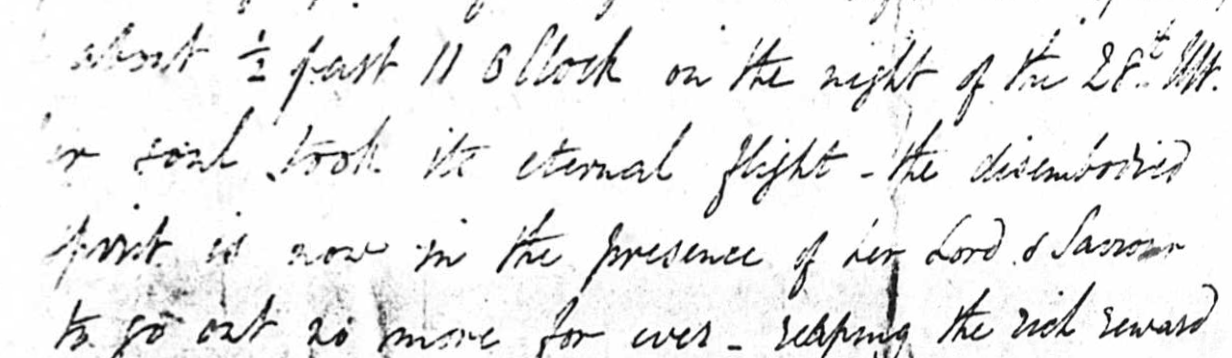 about ½ past 11 O Clock on the night of the 28th Ult.
her soul took its eternal flight - the disembodied
spirit is now in the presence of her Lord & Saviour
to go out no more for ever - reaping the rich reward